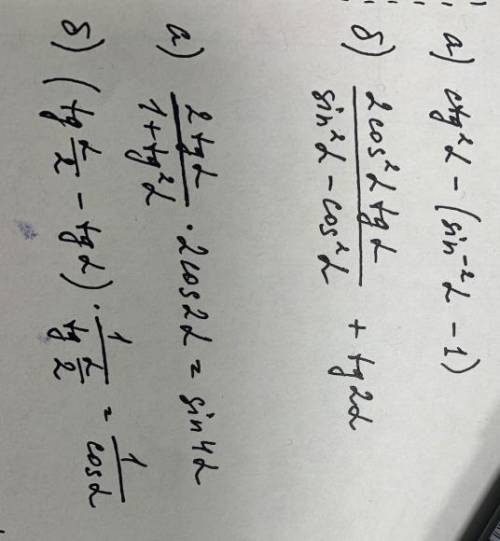 а) ctg²α - (sin⁻²α - 1)
б) 2cos²α tgα / sin²α - cos²α + tg2α
а) 2tgα / 1 + tg²α · 2cos2α = sin4α
б) (tg α/2 - tgα) · 1 / tg α/2 = 1 / cosα